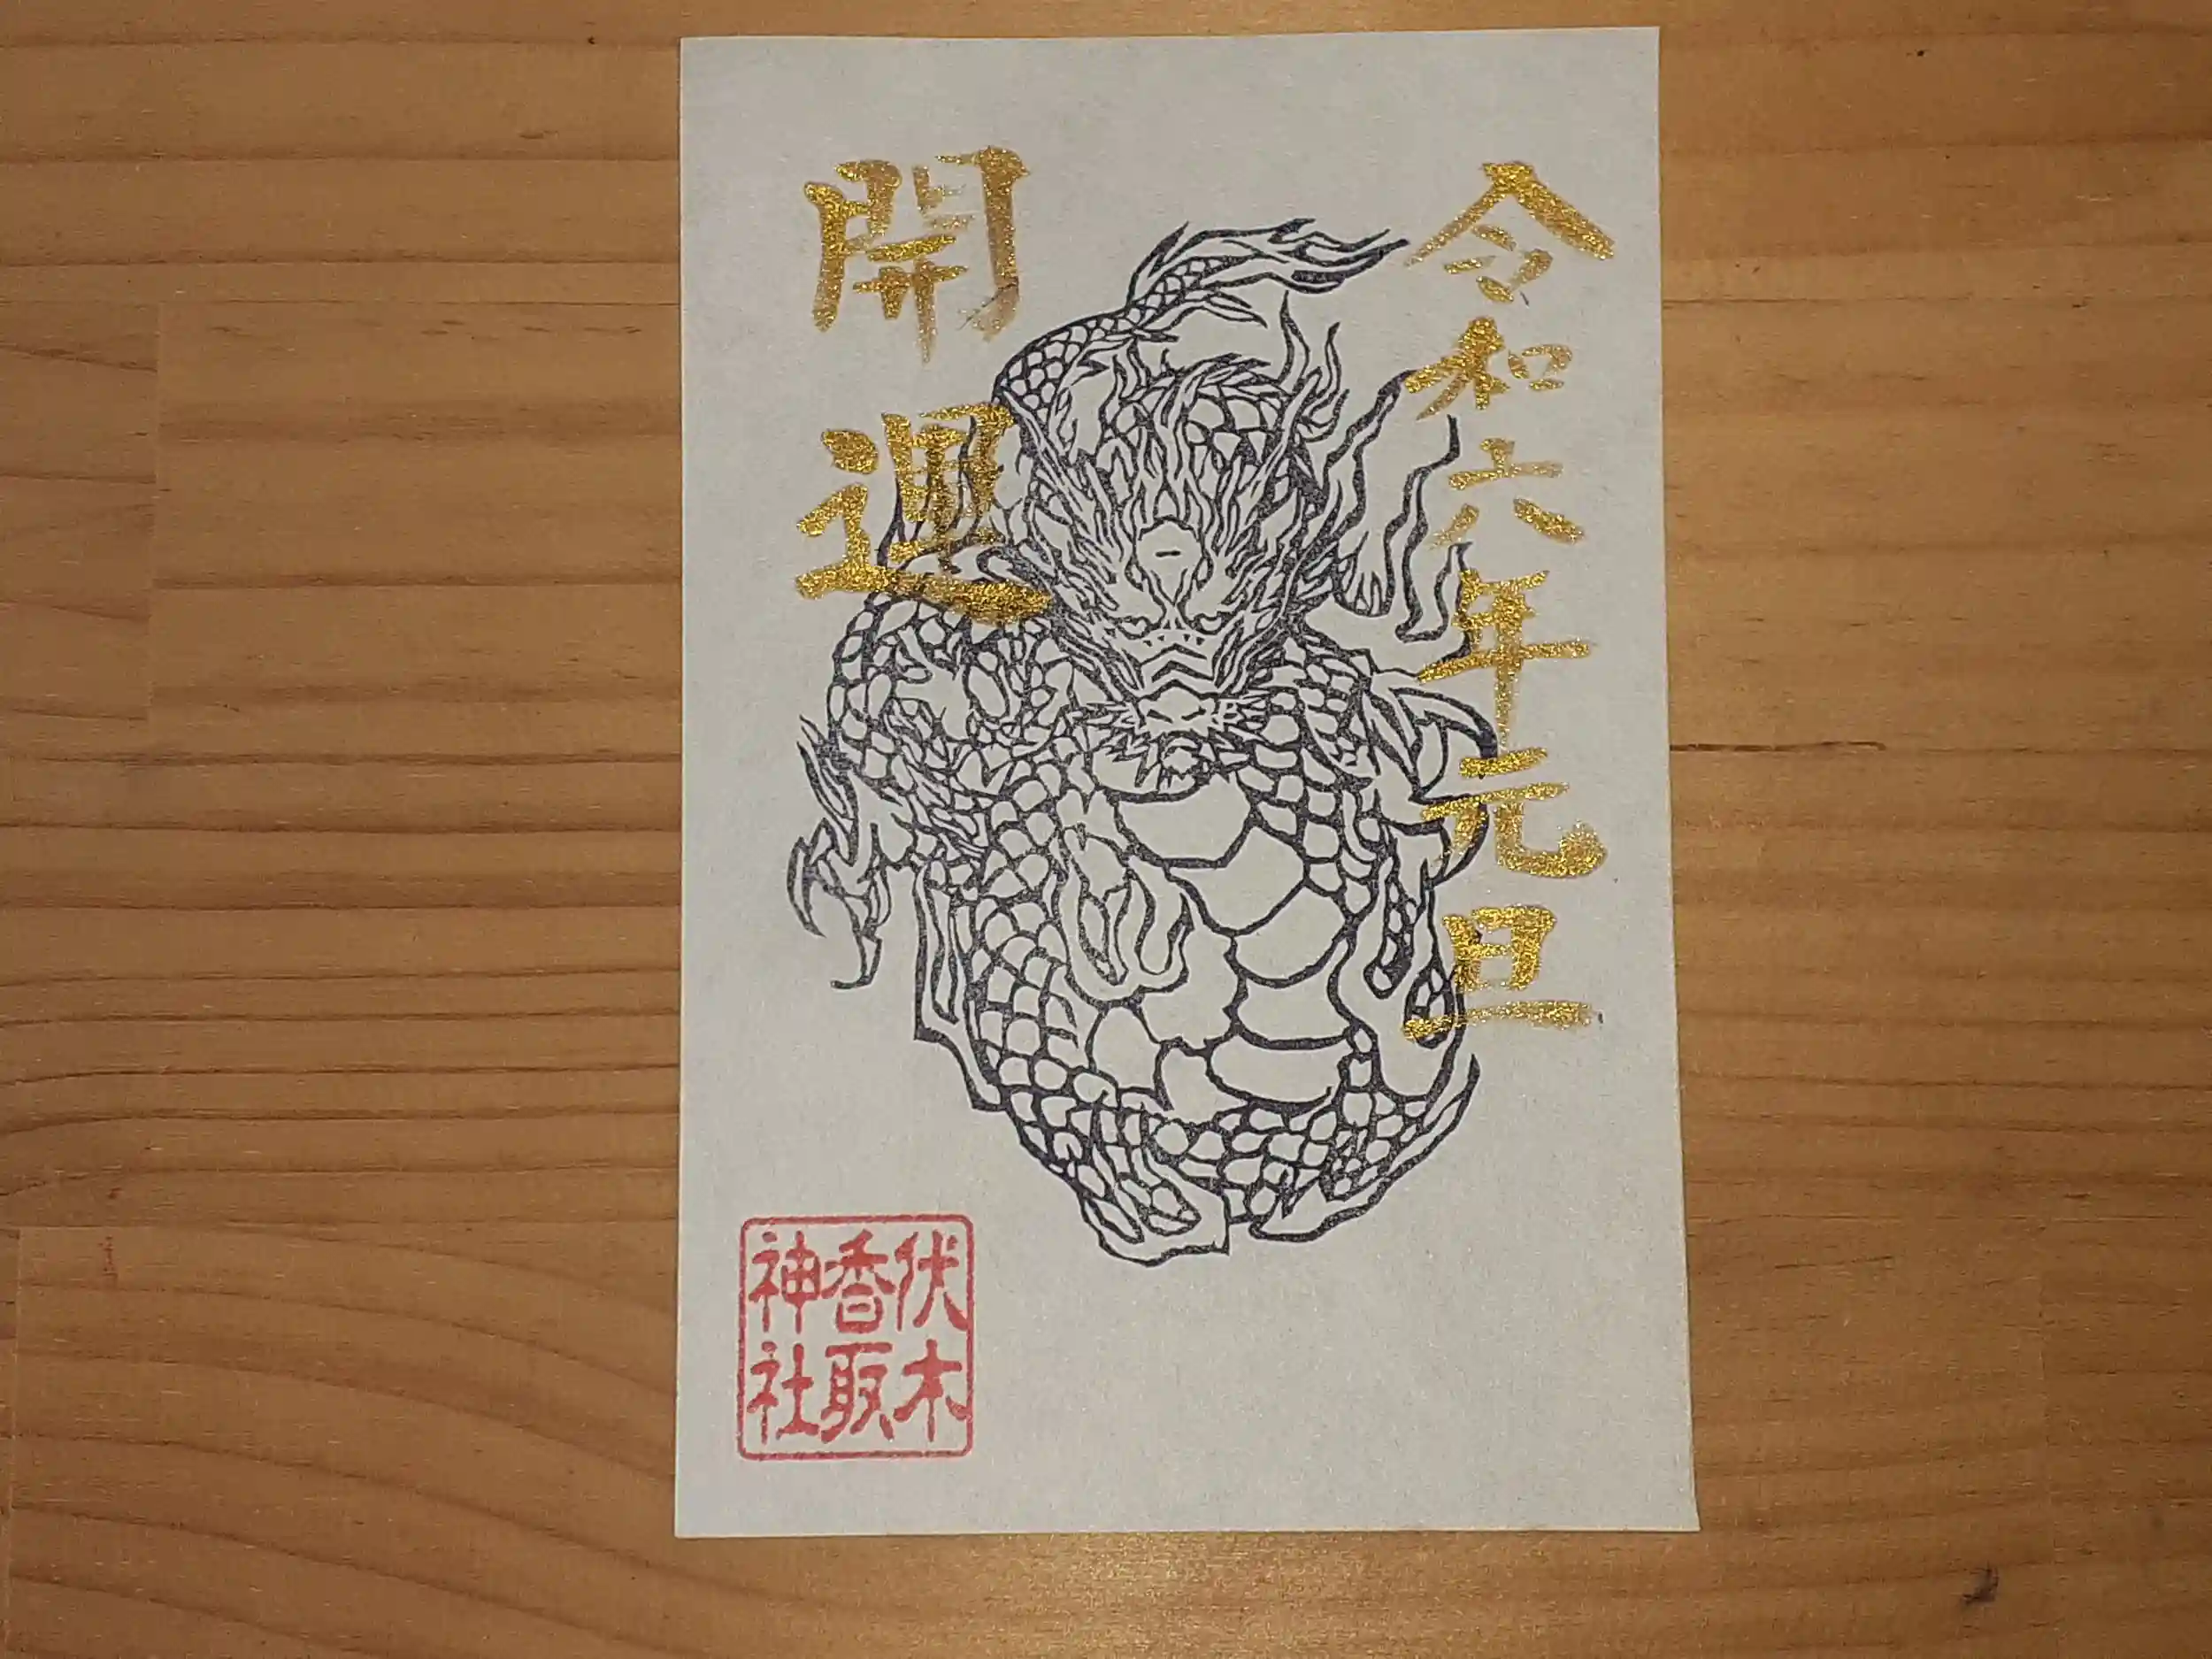 令和六年元旦
開運
伏木
香取
神社